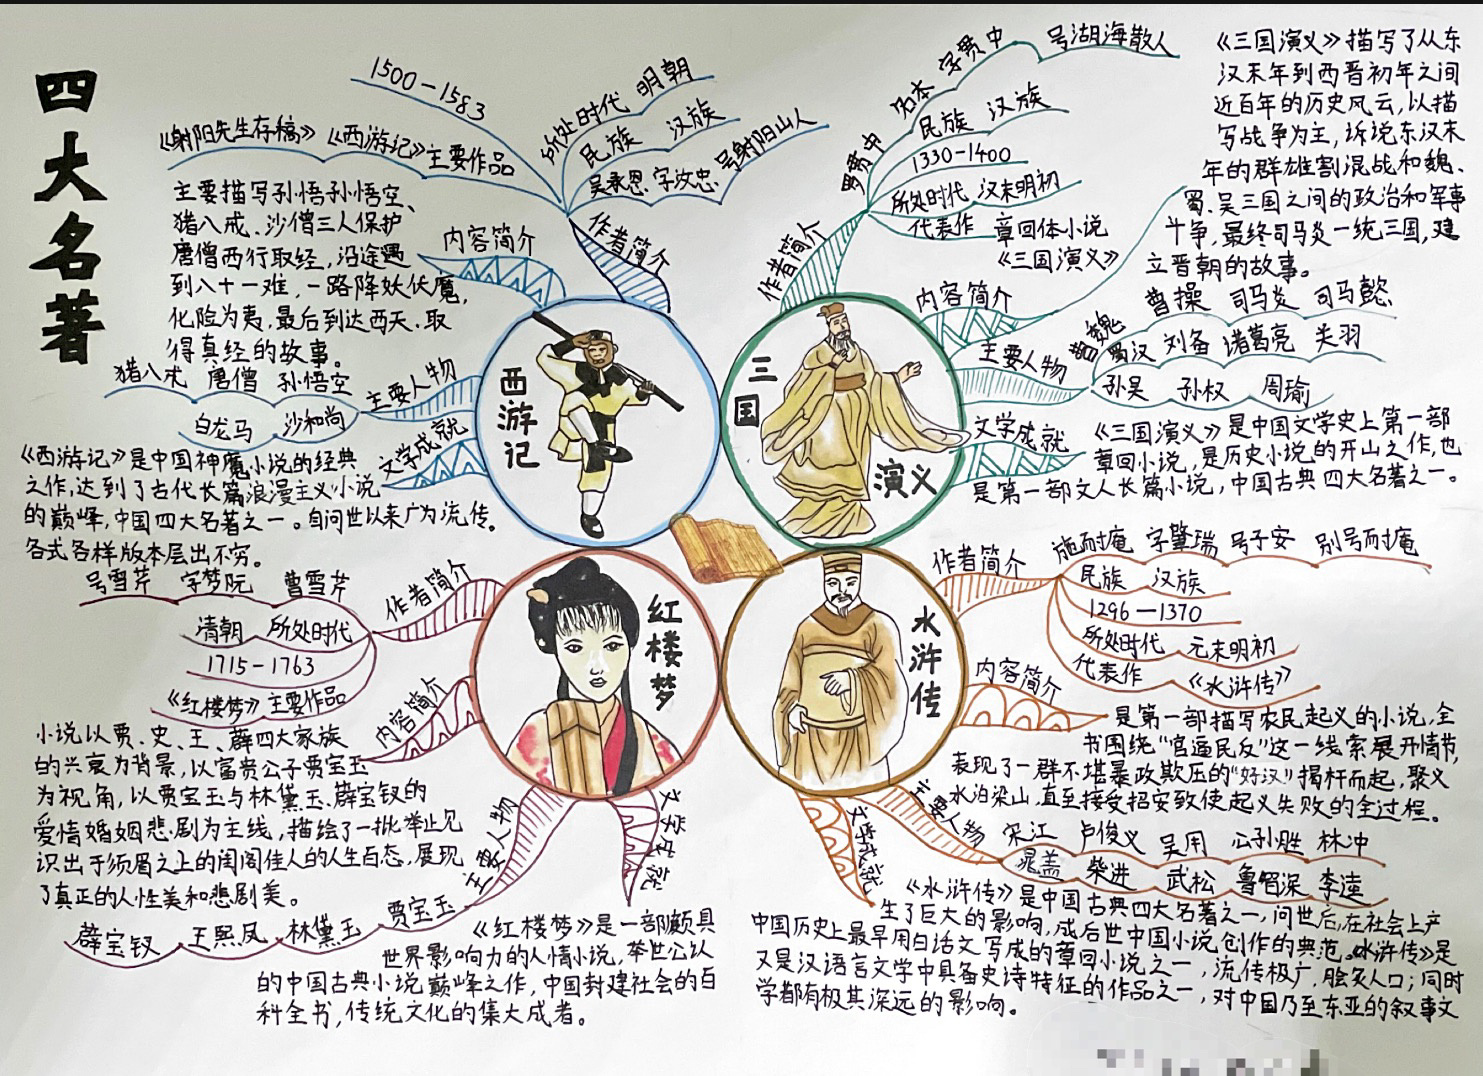 四大名著
1500-1583
《射阳先生存稿》《西游记》主要作品
所处时代 明朝
民族 汉族
吴承恩 字汝忠 号射阳山人
作者简介
内容简介
主要描写孙悟孙悟空、
猪八戒、沙僧三人保护
唐僧西行取经，沿途遇
到八十一难，一路降妖伏魔，
化险为夷，最后到达西天、取
得真经的故事。
主要人物
猪八戒 唐僧 孙悟空
白龙马 沙和尚
文学成就
《西游记》是中国神魔小说的经典
之作，达到了古代长篇浪漫主义小说
的巅峰，中国四大名著之一。自问世以来广为流传。
各式各样版本层出不穷。
西游记
罗贯中 名本 字贯中 号湖海散人
民族 汉族
1330-1400
所处时代 汉末明初
代表作 章回体小说
《三国演义》
作者简介
内容简介
《三国演义》描写了从东
汉末年到西晋初年之间
近百年的历史风云，以描
写战争为主，诉说东汉末
年的群雄割混战和魏、
蜀、吴三国之间的政治和军事
斗争，最终司马炎一统三国，建
立晋朝的故事。
主要人物
曹魏 曹操 司马炎 司马懿
蜀汉 刘备 诸葛亮 关羽
孙吴 孙权 周瑜
文学成就
《三国演义》是中国文学史上第一部
章回小说，是历史小说的开山之作，也
是第一部文人长篇小说，中国古典四大名著之一。
三国演义
作者简介
号雪芹 字梦阮 曹雪芹
清朝 所处时代
1715-1763
《红楼梦》主要作品
内容简介
小说以贾、史、王、薛四大家族
的兴衰为背景，以富贵公子贾宝玉
为视角，以贾宝玉与林黛玉、薛宝钗的
爱情婚姻悲剧为主线，描绘了一批举止见
识出于须眉之上的闺阁佳人的人生百态，展现
了真正的人性美和悲剧美。
主要人物
薛宝钗 王熙凤 林黛玉 贾宝玉
文学成就
《红楼梦》是一部颇具
世界影响力的人情小说，举世公认
的中国古典小说巅峰之作，中国封建社会的百
科全书，传统文化的集大成者。
红楼梦
作者简介
施耐庵 字肇瑞 号子安 别号耐庵
民族 汉族
1296-1370
所处时代 元末明初
代表作 《水浒传》
内容简介
是第一部描写农民起义的小说，全
书围绕"官逼民反"这一线索展开情节，
表现了一群不堪暴政欺压的"好汉"揭杆而起，聚义
水泊梁山，直至接受招安致使起义失败的全过程。
主要人物
宋江 卢俊义 吴用 公孙胜 林冲
晁盖 柴进 武松 鲁智深 李逵
文学成就
《水浒传》是中国古典四大名著之一，问世后，在社会上产
生了巨大的影响，成后世中国小说创作的典范。《水浒传》是
中国历史上最早用白话文写成的章回小说之一，流传极广，脍炙人口；同时
又是汉语言文学中具备史诗特征的作品之一，对中国乃至东亚的叙事文
学都有极其深远的影响。
水浒传